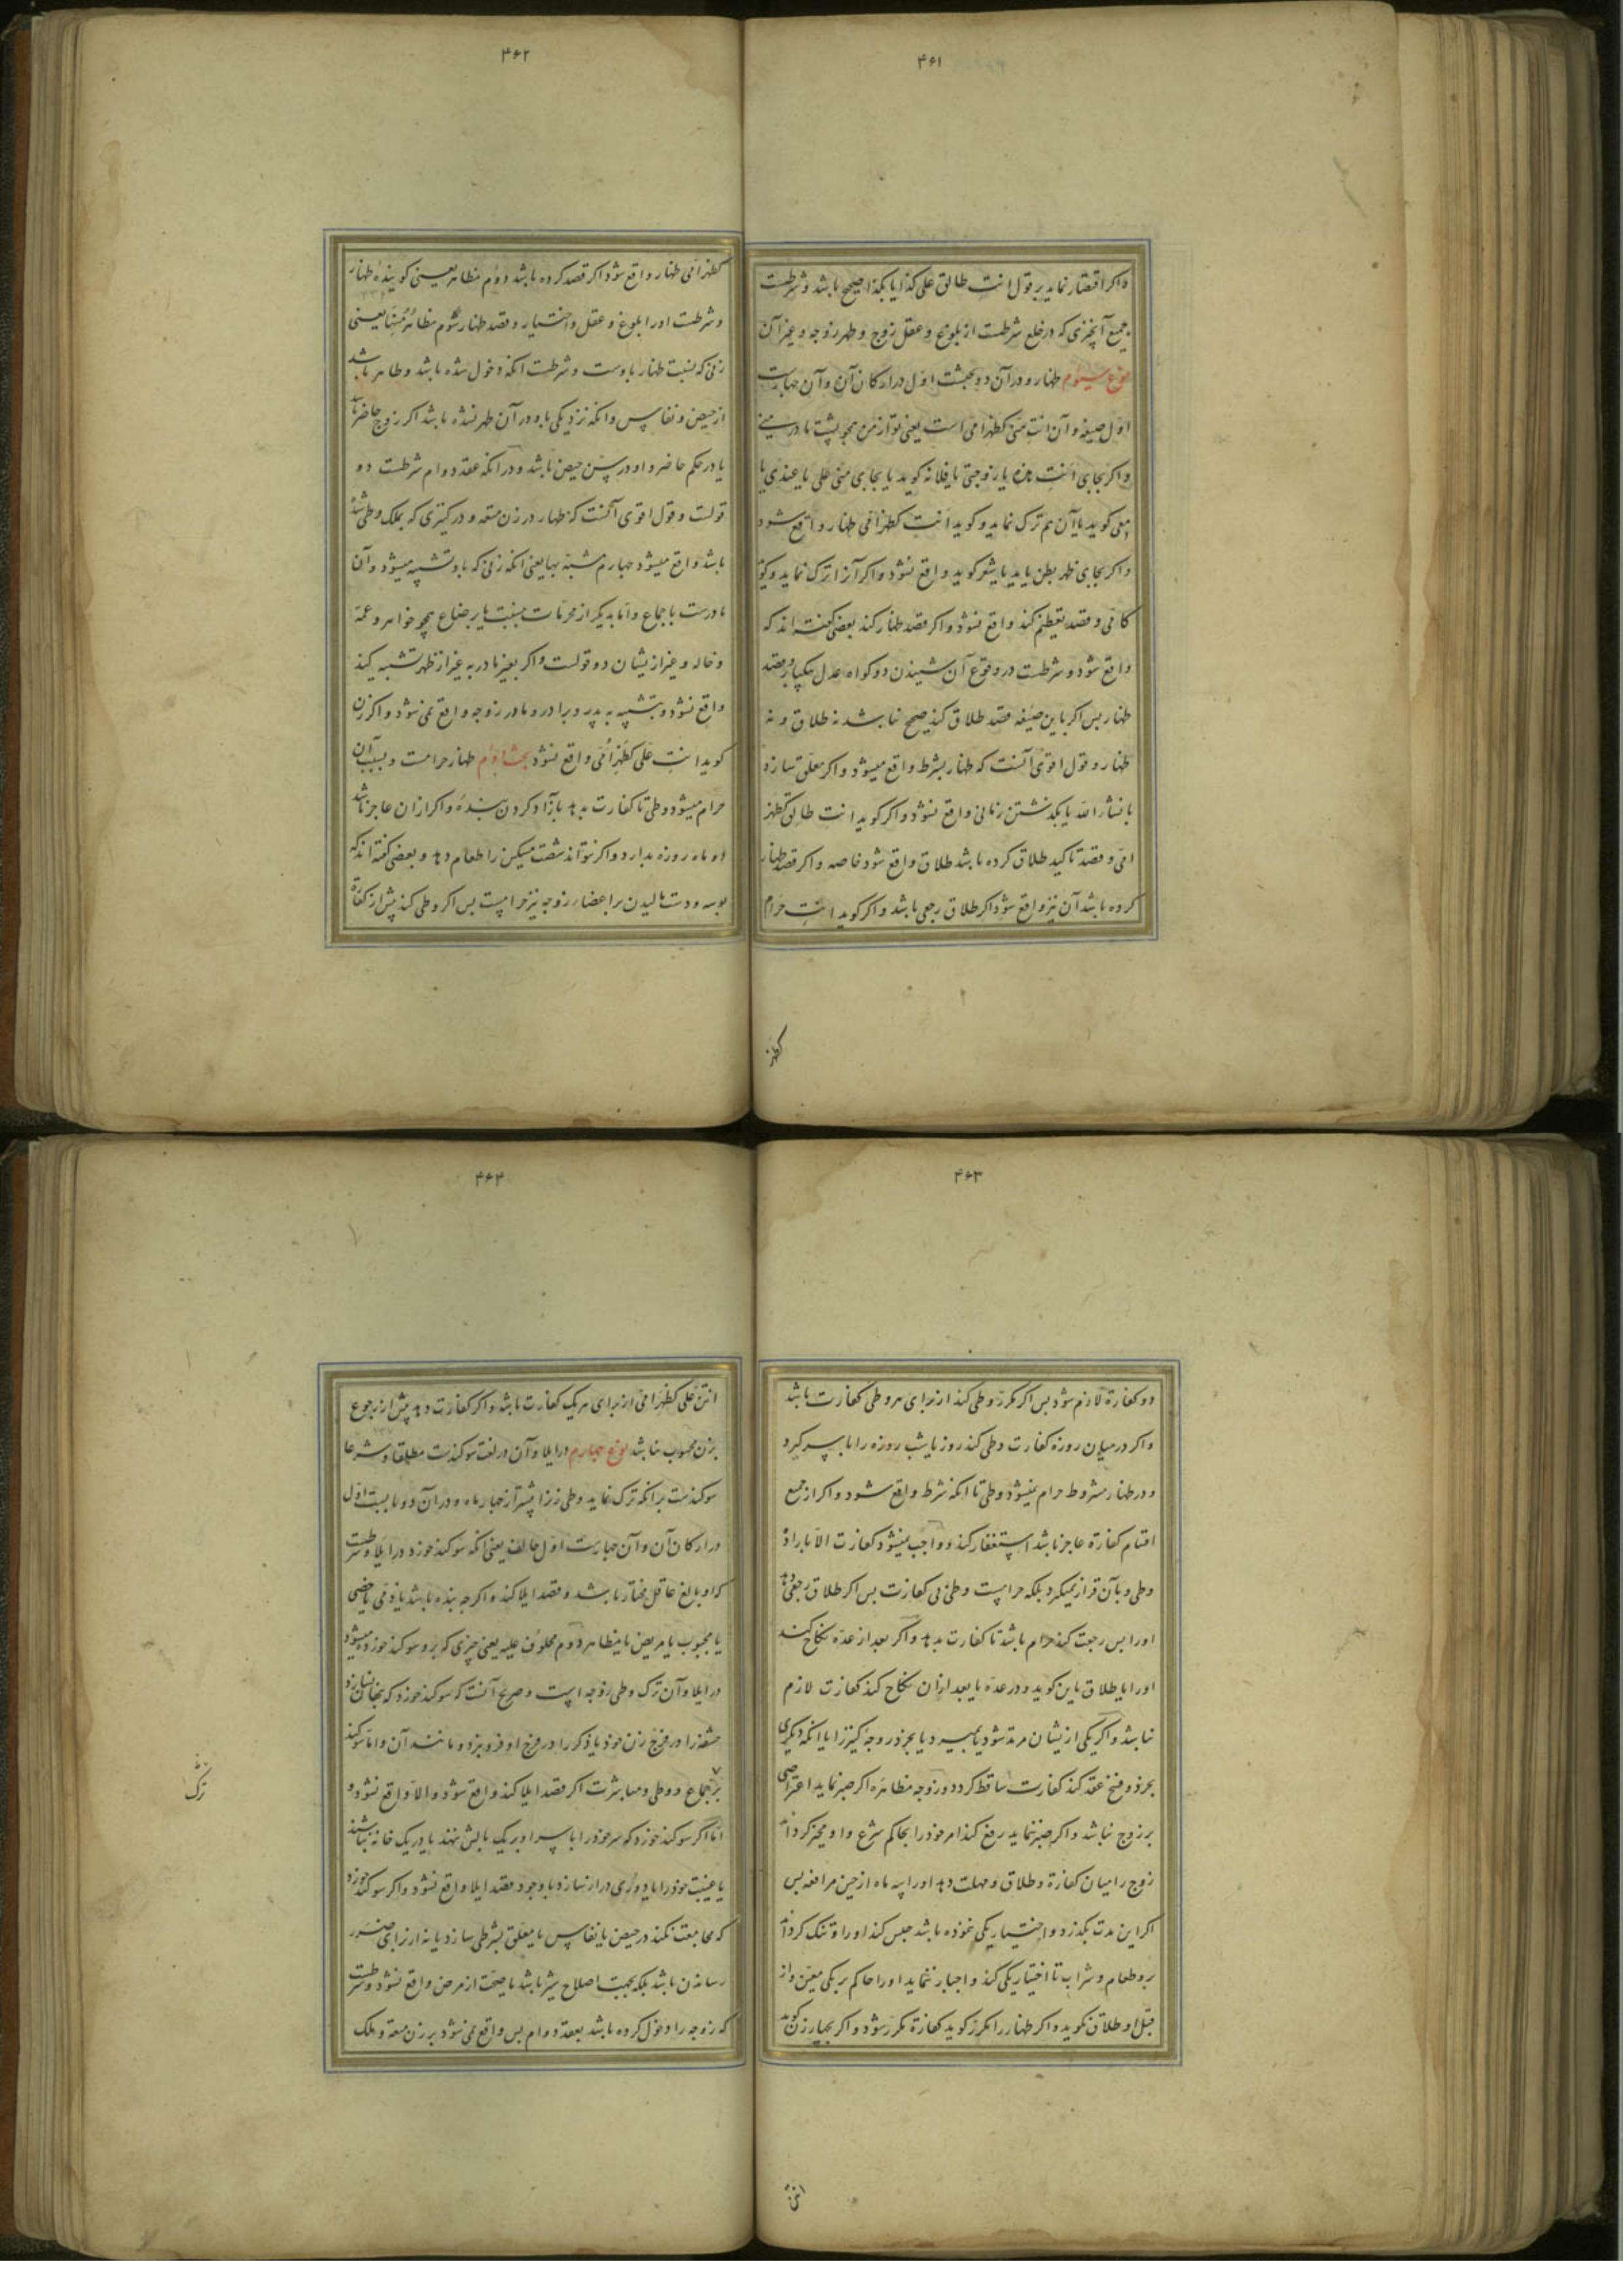 ۴۶۱
واکر اقتصار نماید بر قول انت طالق علی کذا یا بکذا صحیح باشد و شرطست
جمیع آنچیزی که در خلع شرطست از بلوغ و عقل زوج و طهر زوجه و غیر آن
نوع سیوم ظهار و در آن دو بحثست اول در ارکان آن و آن چهارست
اول صیغه و آن انت منی کظهر امی است یعنی تو از من همچو پشت مادر منی
واکر بجای انت هذه یا زوجتی یا فلانه کوید یا بجای منی علی یا عندی یا
معی کوید یا آن هم ترک نماید و کوید انت کظهر امی ظهار واقع شود
واکر بجای ظهر بطن یا ید یا شعر کوید واقع نشود واکر آنرا ترک نماید و کوید
کامی و قصد تعظیم کند واقع نشود واکر قصد ظهار کند بعضی کفته اند که
واقع شود و شرطست در وقوع آن شنیدن دو کواه عدل بیکبار و قصد
ظهار پس اکر باین صیغه قصد طلاق کند صحیح نباشد نه طلاق و نه
ظهار و قول اقوی آنست که ظهار بشرط واقع میشود واکر معلق سازد
بانشاء الله یا بکذشتن زمانی واقع نشود واکر کوید انت طالق کظهر
امی و قصد تاکید طلاق کرده باشد طلاق واقع شود خاصه واکر قصد ظهار
کرده باشد آن نیز واقع شود اکر طلاق رجعی باشد واکر کوید انت حرام
کظهر
۴۶۲
کظهر امی ظهار واقع شود اکر قصد کرده باشد دوم مظاهر یعنی کوینده ظهار
و شرطست اورا بلوغ و عقل و اختیار و قصد ظهار سیوم مظاهر منها یعنی
زنی که نسبت ظهار باوست و شرطست انکه دخول شده باشد و طاهر باشد
از حیض و نفاس و انکه نزدیکی باو در آن طهر نشده باشد اکر زوج حاضر باشد
یا در حکم حاضر و او در سن حیض باشد و در انکه عقد دوام شرطست دو
قولست و قول اقوی آنست که ظهار در زن متعه و در کنیزی که بملک وطی شده
باشد واقع میشود چهارم مشبه بها یعنی انکه زنی که باو تشبیه میشود و آن
مادرست باجماع و اما بدیکر از محرمات بنسب یا برضاع همچو خواهر و عمه
و خاله و غیر ازیشان دو قولست واکر بغیر مادر به غیر از ظهر تشبیه کند
واقع نشود و بتشبیه به پدر و برادر و مادر زوجه واقع نمی شود واکر زن
کوید انت علی کظهر امی واقع نشود بحث دوم ظهار حرامست و بسبب آن
حرام میشود وطی تا کفارت بدهد بآزاد کردن بنده واکر ازان عاجز باشد
دو ماه روزه بدارد واکر نتواند شصت مسکین را طعام دهد و بعضی کفته اند که
بوسه و دست مالیدن بر اعضاء زوجه نیز حرامست پس اکر وطی کند پیش از کفارة
۴۶۳
دو کفارة لازم شود پس اکر مکرر وطی کند از برای هر وطی کفارت باشد
واکر در میان روزه کفارت وطی کند روز یا شب روزه را با سر کیرد
و در ظهار مشروط حرام نمیشود وطی تا انکه شرط واقع شود واکر از جمیع
اقسام کفارة عاجز باشد استغفار کند و واجب نمیشود کفارت الا باراده
وطی و بآن قرار نمیکیرد بلکه حرامست وطی بی کفارت پس اکر طلاق رجعی دهد
اورا پس رجعت کند حرام باشد تا کفارت بدهد واکر بعد از عده نکاح کند
اورا یا طلاق باین کوید و در عده یا بعد ازان نکاح کند کفارت لازم
نباشد واکر یکی ازیشان مرتد شود یا بمیرد یا بخرد زوجه کنیز را یا انکه دیکری
بخرد و فسخ عقد کند کفارت ساقط کردد و زوجه مظاهره اکر صبر نماید اعتراضی
بر زوج نباشد واکر صبر ننماید رفع کند امر خود را بحاکم شرع و او مخیر کرداند
زوج را میان کفارة و طلاق و مهلت دهد اورا سه ماه از حین مرافعه پس
اکر این مدت بکذرد و اختیار یکی ننموده باشد حبس کند اورا و تنک کرداند
برو طعام و شراب تا اختیار یکی کند و اجبار ننماید اورا حاکم بر یکی معین و از
قبل او طلاق نکوید واکر ظهار را مکرر کوید کفارة مکرر شود واکر بچهار زن کوید
انتن
۴۶۴
انتن علی کظهر امی از برای هر یک کفارت باشد واکر کفارت دهد پیش از رجوع
بزن محسوب نباشد نوع چهارم در ایلا و آن در لغت سوکندست مطلقا و شرعا
سوکندست بر انکه ترک نماید وطی زن را پیشتر از چهار ماه و در آن دو بابست اول
در ارکان آن و آن چهارست اول حالف یعنی انکه سوکند خورد در ایلا و شرطست
که او بالغ عاقل مختار باشد و قصد ایلا کند واکر چه بنده باشد یا ذمی یا خصی
یا مجبوب یا مریض یا مظاهر دوم محلوف علیه یعنی چیزی که برو سوکند خورد میشود
در ایلا و آن ترک وطی زوجه است و صریح آنست که سوکند خورد که پنهان نسازد
حشفه را در فرج زن خود یا ذکر را در فرج او فرو نبرد و مانند آن و اما سوکند
بر جماع و وطی و مباشرت اکر قصد ایلا کند واقع شود والا واقع نشود و
اما اکر سوکند خورد که سر خود را با سر او بر یک بالش ننهد یا در یک خانه نباشند
یا غیبت خود را یا دوری دراز سازد با وجود قصد ایلا واقع نشود واکر سوکند خورد
که مجامعت نکند در حیض یا نفاس یا معلق بشرطی سازد یا نه از برای ضرر
رسانیدن باشد بلکه بجهت اصلاح شیر باشد یا صحت از مرض واقع نشود و شرطست
که زوجه را دخول کرده باشد بعقد دوام پس واقع نمی شود بر زن متعه و ملک
ترک